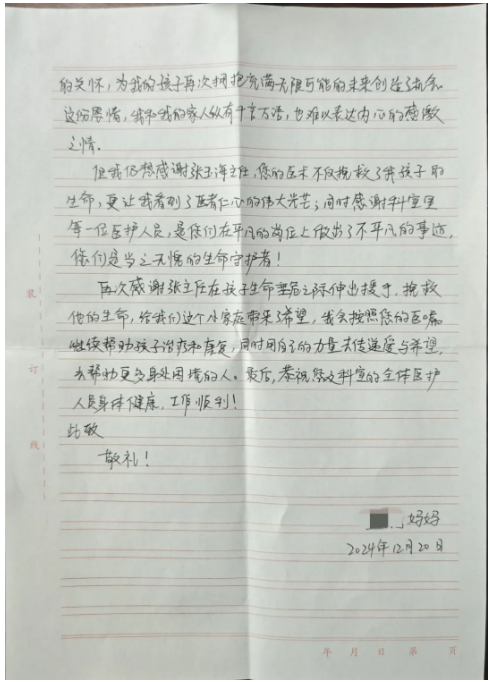 的关怀，为我的孩子再次拥抱充满无限可能的未来创造了机会
这份恩情，我和我的家人纵有千言万语，也难以表达内心的感激
之情。
但我仍想感谢张玉海主任，您的医术不仅挽救了我孩子的
生命，更让我看到了医者仁心的伟大光芒；同时感谢科室里
每一位医护人员，是你们在平凡的岗位上做出了不平凡的事迹，
你们是当之无愧的生命守护者！
再次感谢张主任在孩子生命垂危之际伸出援手，挽救
他的生命，给我们这个小家庭带来了希望，我会按照您的医嘱
继续帮助孩子治疗和康复，同时用自己的力量去传递爱与希望，
去帮助更多身处困境的人。最后，恭祝您及科室的全体医护
人员身体健康，工作顺利！
此致
敬礼！
妈妈
2024年12月20日
装
订
线
年 月 日 第 页